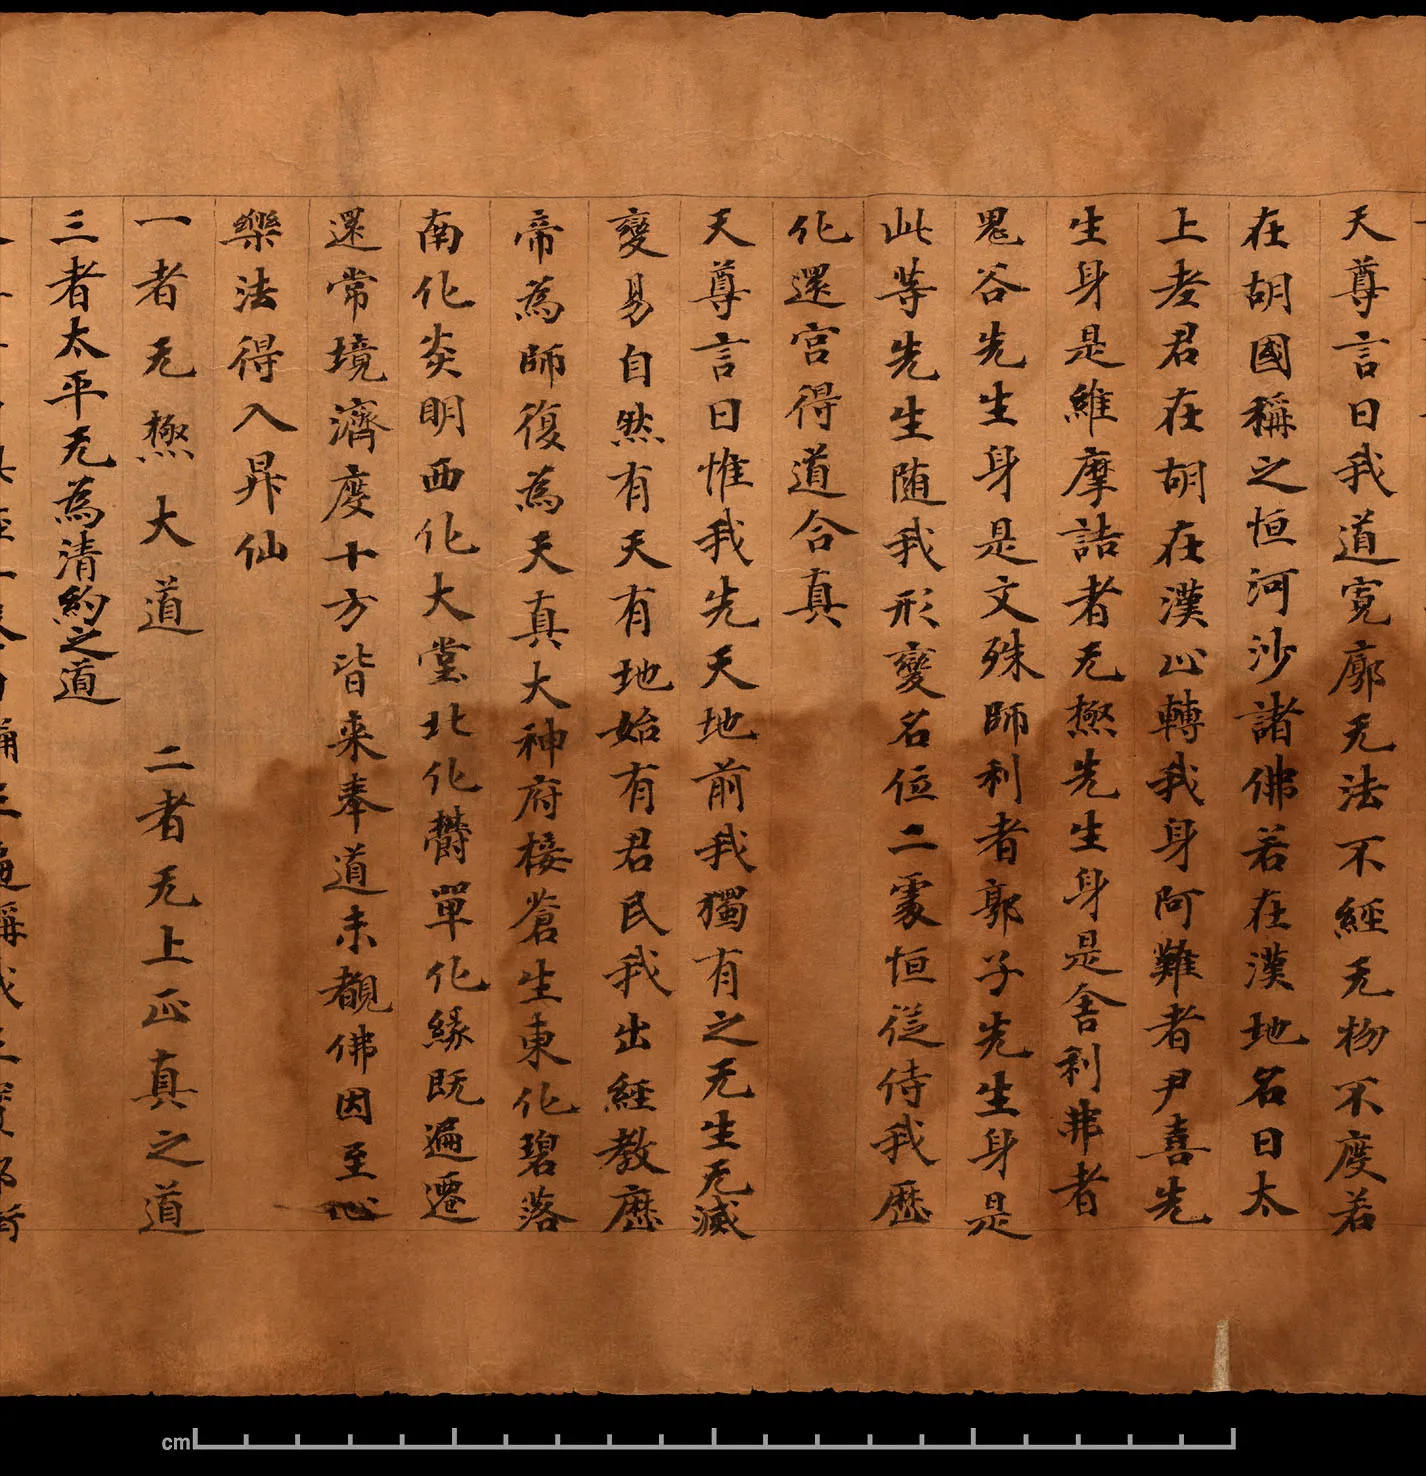 天尊言曰我道寛廓无法不經无物不度若
在胡國稱之恒河沙諸佛若在漢地名曰太
上老君在胡在漢心轉我身阿難者尹喜先
生身是維摩詰者无㧡先生身是舍利弗者
鬼谷先生身是文殊師利者郭子先生身是
此等先生随我形變名位二處恒從侍我歷
化還宮得道合真
天尊言曰惟我先天地前我獨有之无生无滅
變易自然有天有地始有君民我出經教歷
帝為師復為天真大神府接蒼生東化碧落
南化炎明西化大堂北化欎單化緣既遍遷
還常境濟度十方皆来奉道未覩佛因至心
樂法得入昇仙
一者无㧡大道 二者无上正真之道
三者太平无為清約之道
cm